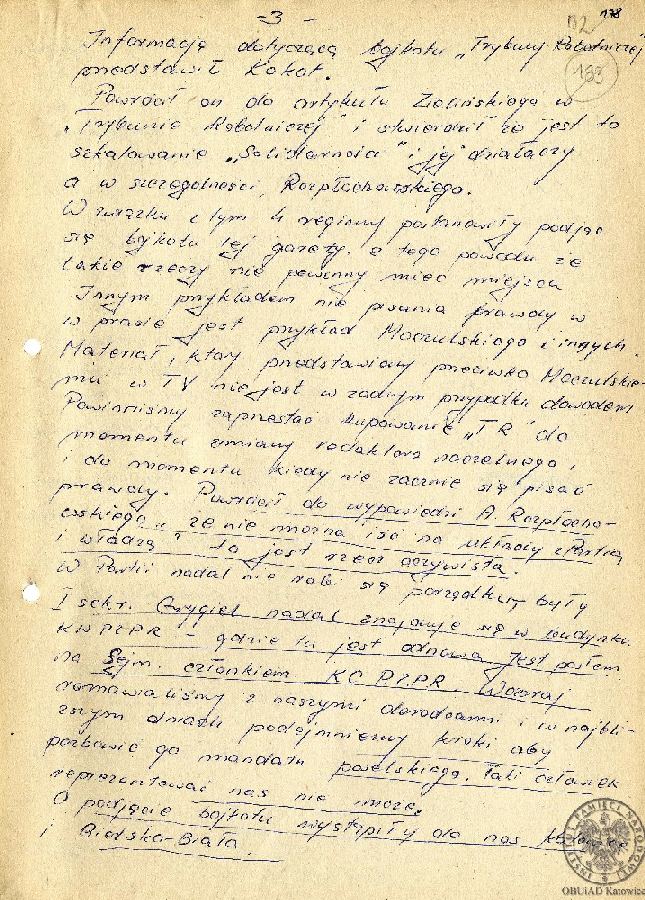 - 3 -
178
183
Informację dotyczącą bojkotu „Trybuny Robotniczej"
przedstawił Kokot.
Powrócił on do artykułu Zielińskiego w
„Trybunie Robotniczej" i stwierdził że jest to
szkalowanie „Solidarności" i jej działaczy
a w szczególności, Rozpłochowskiego.
W związku z tym 4 regiony postanowiły podjąć
się bojkotu tej gazety, z tego powodu że
takie rzeczy nie powinny mieć miejsca
Innym przykładem nie pisania prawdy w
w prasie jest przykład Moczulskiego i innych.
Materiał, który przedstawiany przeciwko Moczulskie-
mu w TV nie jest w żadnym przypadku dowodem
Powinniśmy zaprzestać kupowanie „TR" do
momentu zmiany redaktora naczelnego,
i do momentu kiedy nie zacznie się pisać
prawdy. Powrócił do wypowiedzi A Rozpłocho-
wskiego „ że nie można iść na układy z Partią
i władzą" to jest rzecz oczywista.
W Partii nadal nie robi się porządków, były
I sekr. Grygiel nadal znajduje się w budynku
KW PZPR - gdzie tu jest odnowa. Jest posłem
na Sejm. członkiem KC PZPR. Wczoraj
rozmawialiśmy z naszymi doradcami i w najbli-
ższym dniach podejmiemy kroki aby
pozbawić go mandatu poselskiego. Taki członek
reprezentować nas nie może.
O podjęcie bojkotu wystąpiły do nas Katowice
i Bielsko-Biała.
INSTYTUT PAMIĘCI NARODOWEJ
OBUiAD Katowice